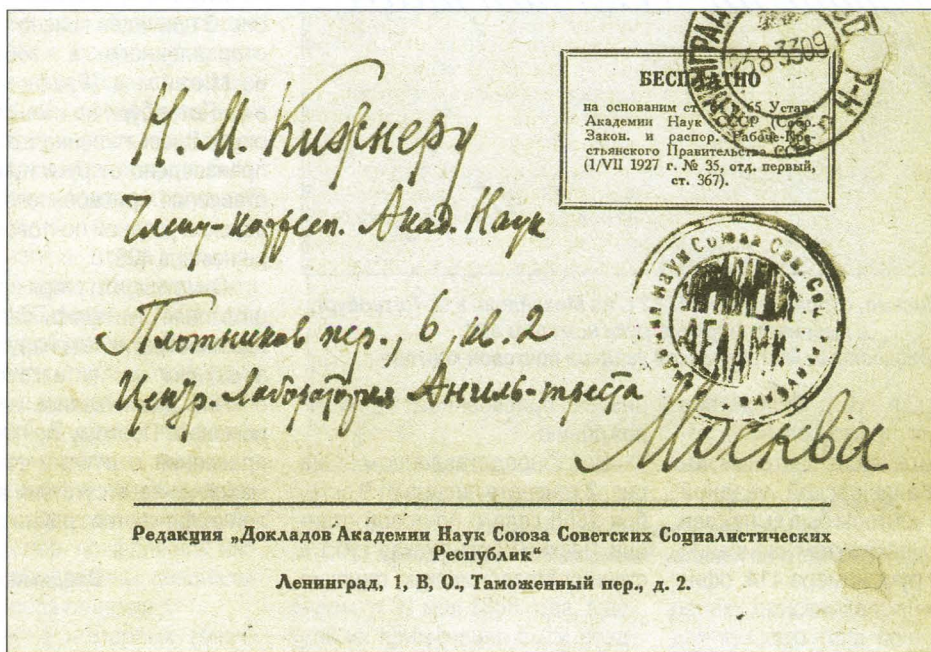 ЛЕНИНГРАД
23 8 33 09
БЕСПЛАТНО
на основании ст. 64 и 65 Устава
Академии Наук СССР (Собр.
Закон. и распор. Рабоче-Кре-
стьянского Правительства СССР
(1/VII 1927 г. № 35, отд. первый,
ст. 367).
Н. М. Кижнеру
Члену-корресп. Акад. Наук
Плотников пер., 6, кв. 2
Центр. Лаборатория Анилтреста
Москва
Наук Союза Сов. Соц.
Редакция „Докладов Академии Наук Союза Советских Социалистических
Республик“
Ленинград, 1, В, О., Таможенный пер., д. 2.